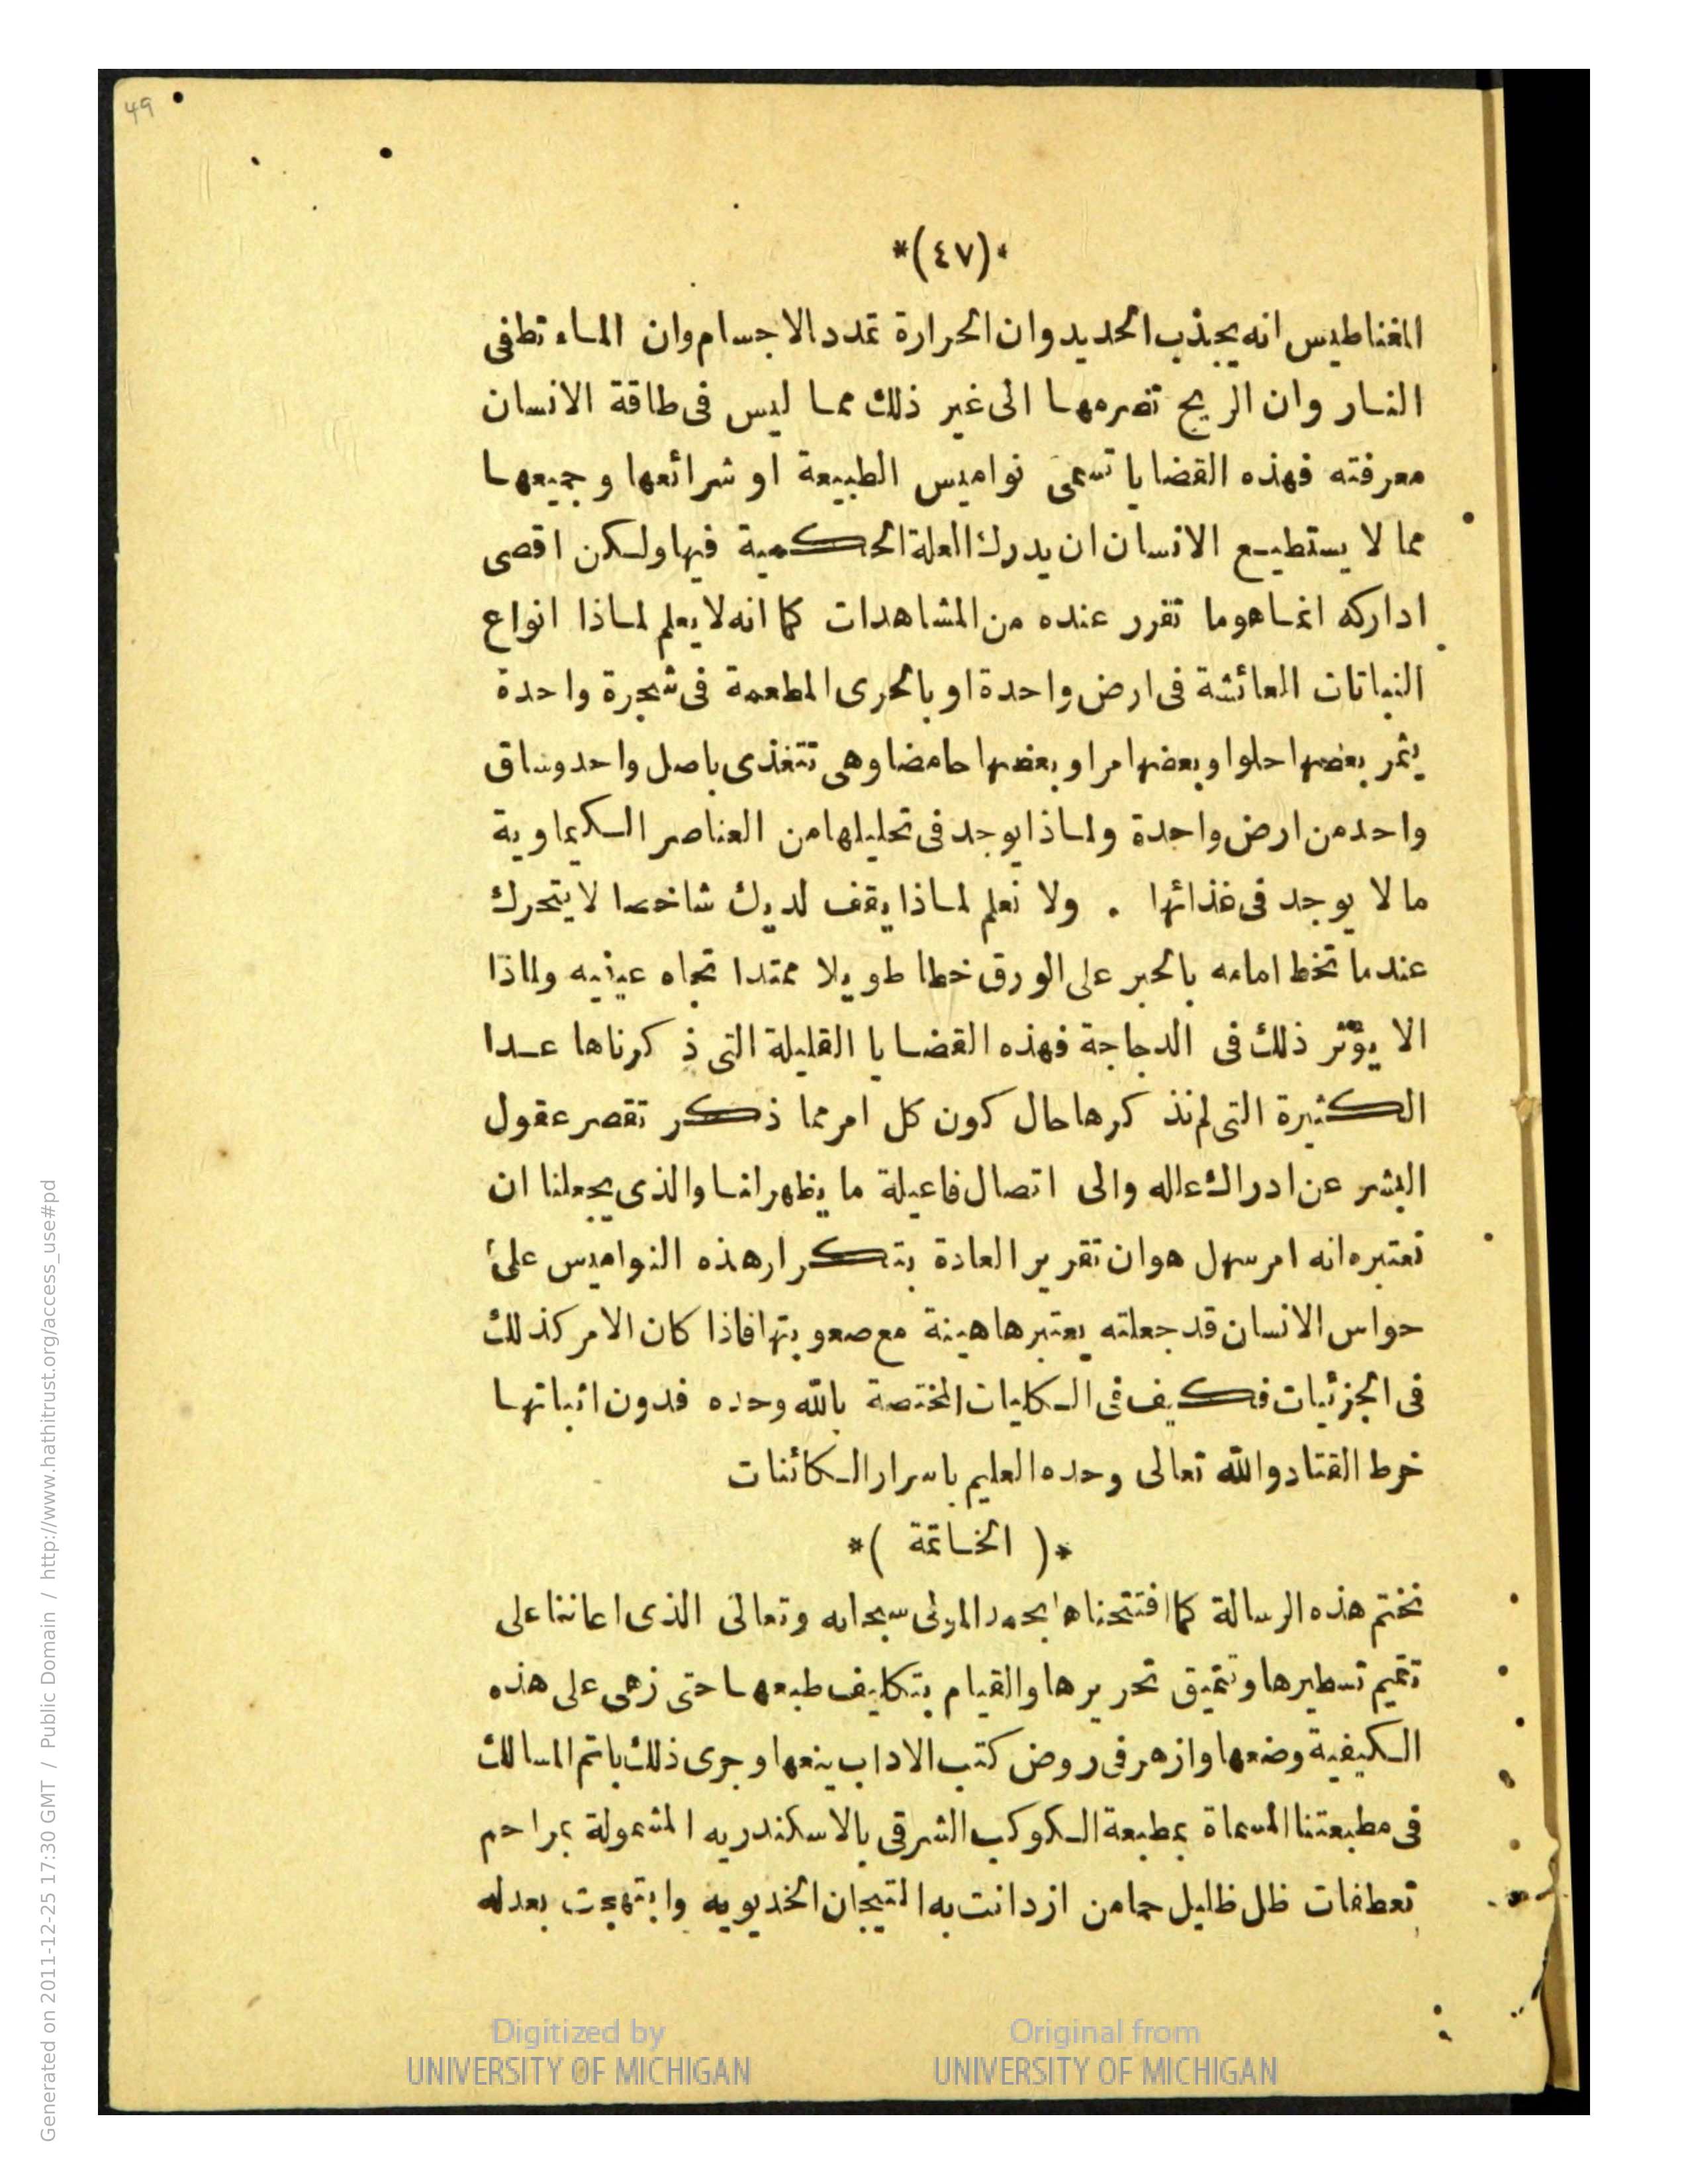 49
*(٤٧)*
المغناطيس انه يجذب الحديد وان الحرارة تمدد الاجسام وان الماء تطفى
النار وان الريح تضرمها الى غير ذلك مما ليس فى طاقة الانسان
معرفته فهذه القضايا تسمى نواميس الطبيعة او شرائعها وجميعها
مما لا يستطيع الانسان ان يدرك العلة الحكمية فيها ولكن اقصى
اداركه انما هو ما تقرر عنده من المشاهدات كما انه لا يعلم لماذا انواع
النباتات العائشة فى ارض واحدة او بالحرى المطعمة فى شجرة واحدة
يثمر بعضها حلوا وبعضها مرا وبعضها حامضا وهى تتغذى باصل واحد وساق
واحد من ارض واحدة ولماذا يوجد فى تحليلها من العناصر الكيماوية
ما لا يوجد فى غذائها . ولا نعلم لماذا يقف لديك شاخصا لا يتحرك
عندما تخط امامه بالحبر على الورق خطا طويلا ممتدا تجاه عينيه ولماذا
الا يؤثر ذلك فى الدجاجة فهذه القضايا القليلة التى ذكرناها عدا
الكثيرة التى لم نذكرها حال كون كل امر مما ذكر تقصر عقول
البشر عن ادراك علله والى اتصال فاعيلة ما يظهر لنا والذى يجعلنا ان
نعتبره انه امر سهل هو ان تقرير العادة بتكرار هذه النواميس على
حواس الانسان قد جعلته يعتبرها هينة مع صعوبتها فاذا كان الامر كذلك
فى الجزئيات فكيف فى الكليات المختصة بالله وحده فدون اثباتها
خرط القتاد والله تعالى وحده العليم باسرار الكائنات
*( الخاتمة )*
نختم هذه الرسالة كما افتتحناها بحمد المولى سبحانه وتعالى الذى اعاننا على
تتميم تسطيرها وتنميق تحريرها والقيام بتكاليف طبعها حتى زهى على هذه
الكيفية وضعها وازهر فى روض كتب الاداب ينعها وجرى ذلك باتم المسالك
فى مطبعتنا المسماة بمطبعة الكوكب الشرقى بالاسكندريه المشمولة بمراحم
تعطفات ظل ظليل حمامن ازدانت به التيجان الخديويه وابتهجت بعدله
Digitized by
UNIVERSITY OF MICHIGAN
Original from
UNIVERSITY OF MICHIGAN
Generated on 2011-12-25 17:30 GMT / Public Domain / http://www.hathitrust.org/access_use#pd